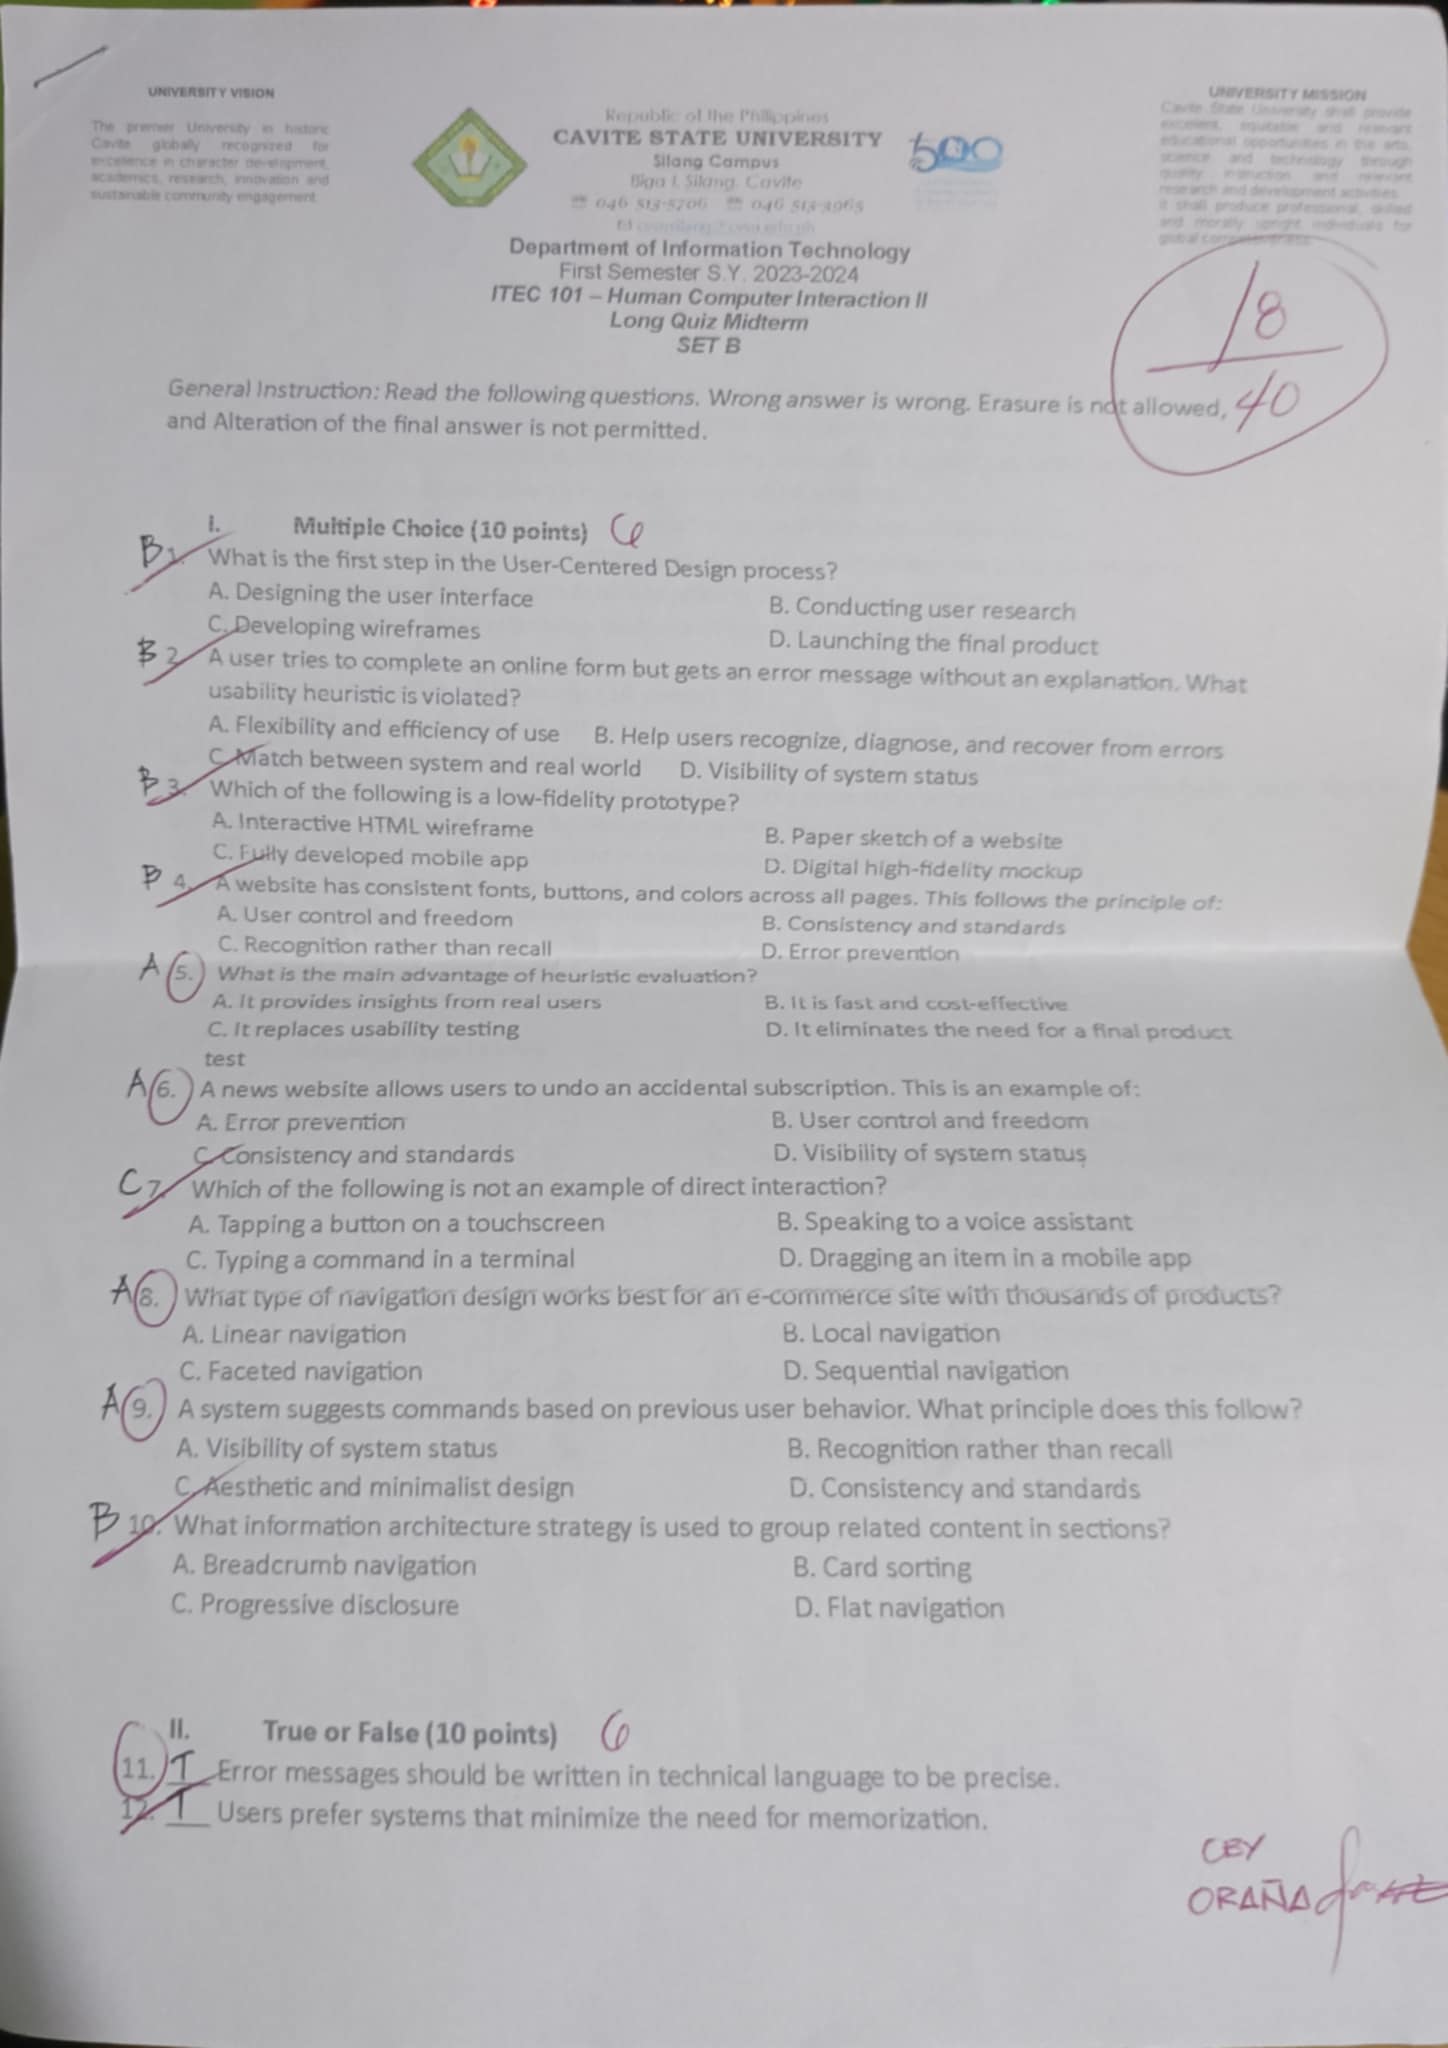 UNIVERSITY VISION
The premier University in historic
Cavite globally recognized for
excellence in character development,
academics, research, innovation and
sustainable community engagement.
Republic of the Philippines
CAVITE STATE UNIVERSITY
Silang Campus
Biga I, Silang, Cavite
046 513-5706 046 513-3965
500
UNIVERSITY MISSION
Cavite State University shall provide
excellent, equitable and relevant
educational opportunities in the arts,
science and technology through
quality instruction and relevant
research and development activities.
It shall produce professional, skilled
and morally upright individuals for
global competitiveness.
Department of Information Technology
First Semester S.Y. 2023-2024
ITEC 101 – Human Computer Interaction II
Long Quiz Midterm
SET B
18
40
General Instruction: Read the following questions. Wrong answer is wrong. Erasure is not allowed,
and Alteration of the final answer is not permitted.
I. Multiple Choice (10 points) 6
B 1. What is the first step in the User-Centered Design process?
A. Designing the user interface B. Conducting user research
C. Developing wireframes D. Launching the final product
B 2. A user tries to complete an online form but gets an error message without an explanation. What
usability heuristic is violated?
A. Flexibility and efficiency of use B. Help users recognize, diagnose, and recover from errors
C. Match between system and real world D. Visibility of system status
B 3. Which of the following is a low-fidelity prototype?
A. Interactive HTML wireframe B. Paper sketch of a website
C. Fully developed mobile app D. Digital high-fidelity mockup
B 4. A website has consistent fonts, buttons, and colors across all pages. This follows the principle of:
A. User control and freedom B. Consistency and standards
C. Recognition rather than recall D. Error prevention
A 5. What is the main advantage of heuristic evaluation?
A. It provides insights from real users B. It is fast and cost-effective
C. It replaces usability testing D. It eliminates the need for a final product
test
A 6. A news website allows users to undo an accidental subscription. This is an example of:
A. Error prevention B. User control and freedom
C. Consistency and standards D. Visibility of system status
C 7. Which of the following is not an example of direct interaction?
A. Tapping a button on a touchscreen B. Speaking to a voice assistant
C. Typing a command in a terminal D. Dragging an item in a mobile app
A 8. What type of navigation design works best for an e-commerce site with thousands of products?
A. Linear navigation B. Local navigation
C. Faceted navigation D. Sequential navigation
A 9. A system suggests commands based on previous user behavior. What principle does this follow?
A. Visibility of system status B. Recognition rather than recall
C. Aesthetic and minimalist design D. Consistency and standards
B 10. What information architecture strategy is used to group related content in sections?
A. Breadcrumb navigation B. Card sorting
C. Progressive disclosure D. Flat navigation
II. True or False (10 points) 6
11. T Error messages should be written in technical language to be precise.
12. T Users prefer systems that minimize the need for memorization.
CBY
ORAÑA